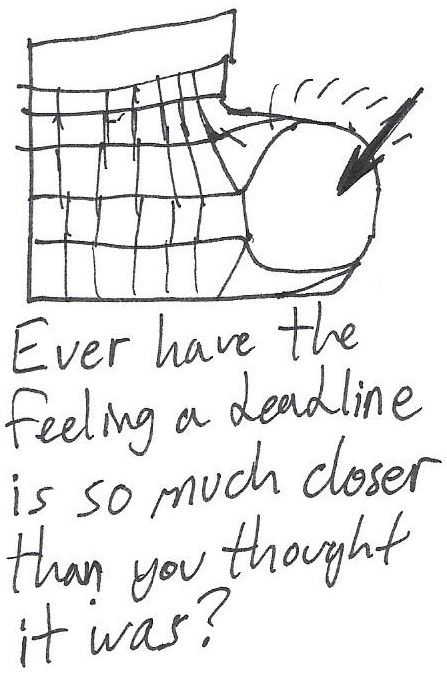 Ever have the
feeling a deadline
is so much closer
than you thought
it was?